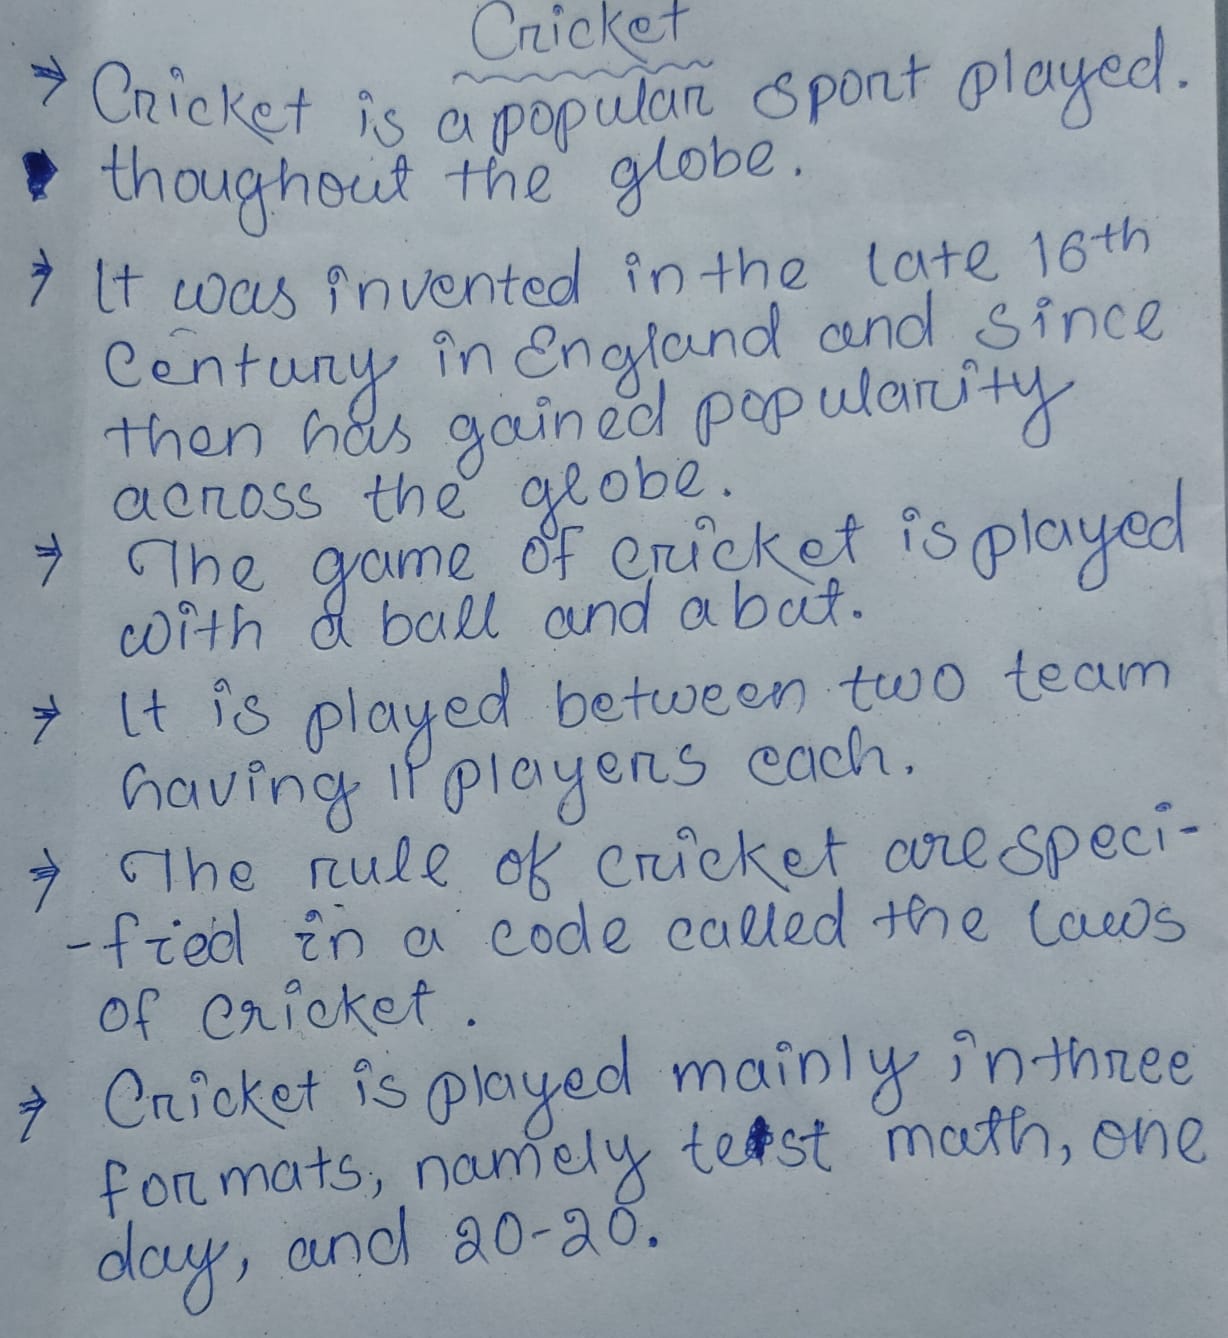 Cricket
⇒ Cricket is a popular sport played.
thoughout the globe.
⇒ It was invented in the late 16th
Century in England and since
then has gained popularity
across the globe.
⇒ The game of cricket is played
with a ball and a bat.
⇒ It is played between two team
having 11 players each.
⇒ The rule of cricket are speci-
-fied in a code called the laws
of cricket.
⇒ Cricket is played mainly in three
formats, namely test math, one
day, and 20-20.